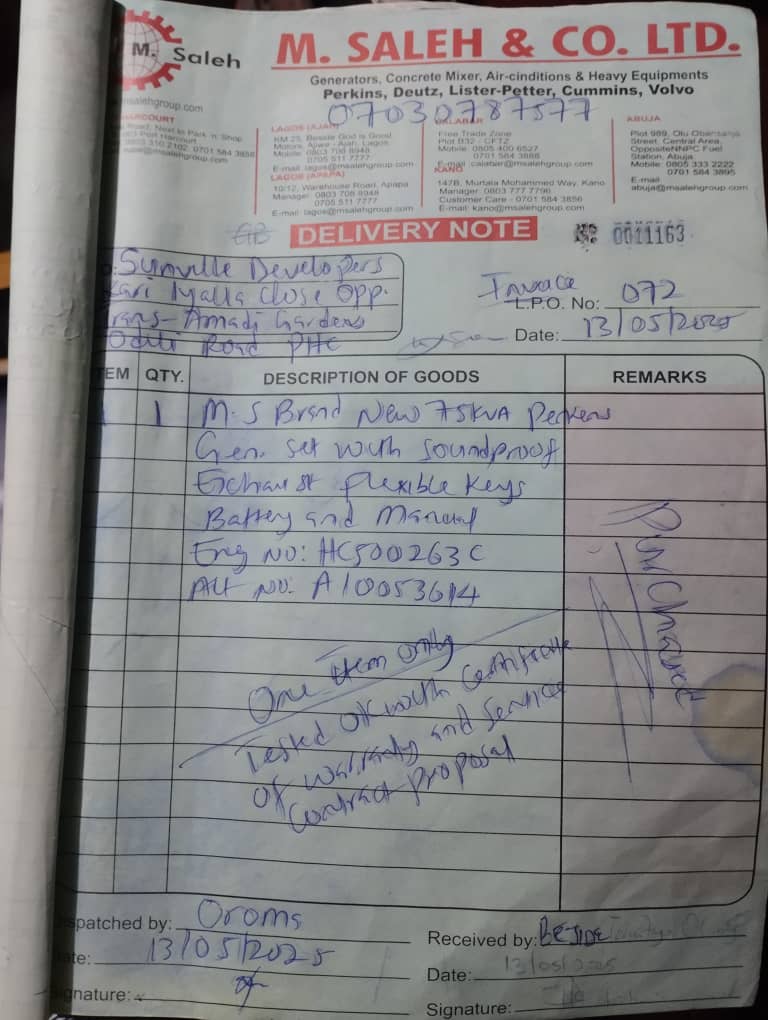 M. Saleh
M. SALEH & CO. LTD.
Generators, Concrete Mixer, Air-cinditions & Heavy Equipments
Perkins, Deutz, Lister-Petter, Cummins, Volvo
msalehgroup.com
07030787577
HARCOURT
Road, Next to Park 'n' Shop
Port Harcourt
0701 584 3858
LAGOS (AJAH)
KM 25, Beside God is Good
Motors, Ajiwe - Ajah, Lagos
Mobile: 0803 706 8948
0705 511 7777
E-mail: lagos@msalehgroup.com
LAGOS (APAPA)
10/12, Warehouse Road, Apapa
Manager: 0803 706 8948
0705 511 7777
E-mail: lagos@msalehgroup.com
CALABAR
Free Trade Zone
Plot B32 - CFTZ
Mobile: 0805 400 6527
0701 584 3888
E-mail: calabar@msalehgroup.com
KANO
147B, Murtala Mohammed Way, Kano
Manager: 0803 777 7796
Customer Care - 0701 584 3856
E-mail: kano@msalehgroup.com
ABUJA
Plot 989, Olu Obansanjo
Street, Central Area,
OppositeNNPC Fuel
Station, Abuja
Mobile: 0805 333 2222
0701 584 3895
E-mail
abuja@msalehgroup.com
DELIVERY NOTE
No 0011163
Sunville Developers
Close Opp.
Trans-Amadi Gardens
Odili Road PHC
Invoice
L.P.O. No: 072
Date: 13/05/2025
EM QTY. DESCRIPTION OF GOODS REMARKS
1 1 M.S Brand New 75KVA Perkens
Gen. set with soundproof
Exhaust flexible keys
Battery and Manual
Eng NO: HC500263C
Alt NO: A10053614
One item only
Tested OK with certificate
of warranty and service
contract proposal
spatched by: Oroms
ate: 13/05/2025
ignature:
Received by:
Date: 13/05/2025
Signature: